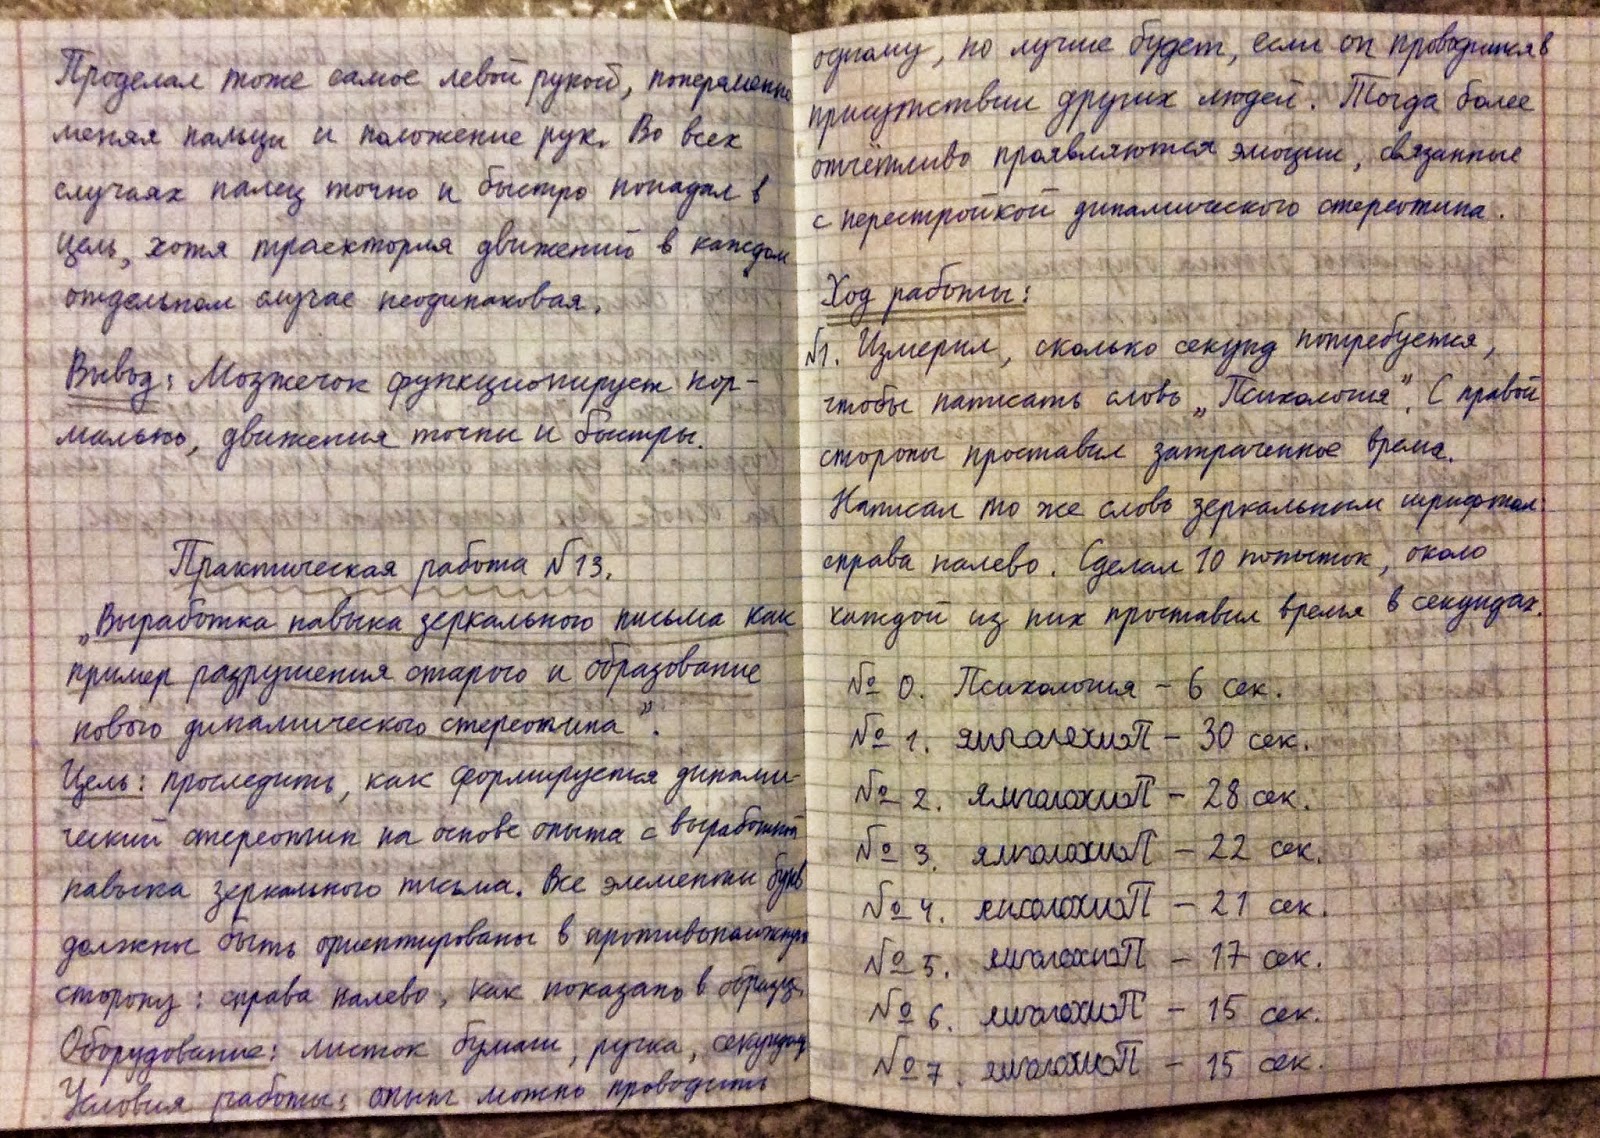 Проделал тоже самое левой рукой, попеременно
меняя пальцы и положение рук. Во всех
случаях палец точно и быстро попадал в
цель, хотя траектория движений в каждом
отдельном случае неодинаковая.
Вывод: Мозжечок функционирует нор-
мально, движения точны и быстры.
Практическая работа №13.
„Выработка навыка зеркального письма как
пример разрушения старого и образование
нового динамического стереотипа".
Цель: проследить, как формируется динами-
ческий стереотип на основе опыта с выработкой
навыка зеркального письма. Все элементы букв
должны быть ориентированы в противоположную
сторону: справа налево, как показано в образце.
Оборудование: листок бумаги, ручка, секундом
Условия работы: опыт можно проводить
одному, но лучше будет, если он проводится в
присутствии других людей. Тогда более
отчётливо проявляются эмоции, связанные
с перестройкой динамического стереотипа.
Ход работы:
№1. Измерил, сколько секунд потребуется,
чтобы написать слово „Психология". С правой
стороны проставил затраченное время.
Написал то же слово зеркальным шрифтом:
справа налево. Сделал 10 попыток, около
каждой из них проставил время в секундах.
№ 0. Психология – 6 сек.
№ 1. яиголохисП – 30 сек.
№ 2. яиголохисП – 28 сек.
№ 3. яиголохисП – 22 сек.
№ 4. яиголохисП – 21 сек.
№ 5. яиголохисП – 17 сек.
№ 6. яиголохисП – 15 сек.
№ 7. яиголохисП – 15 сек.